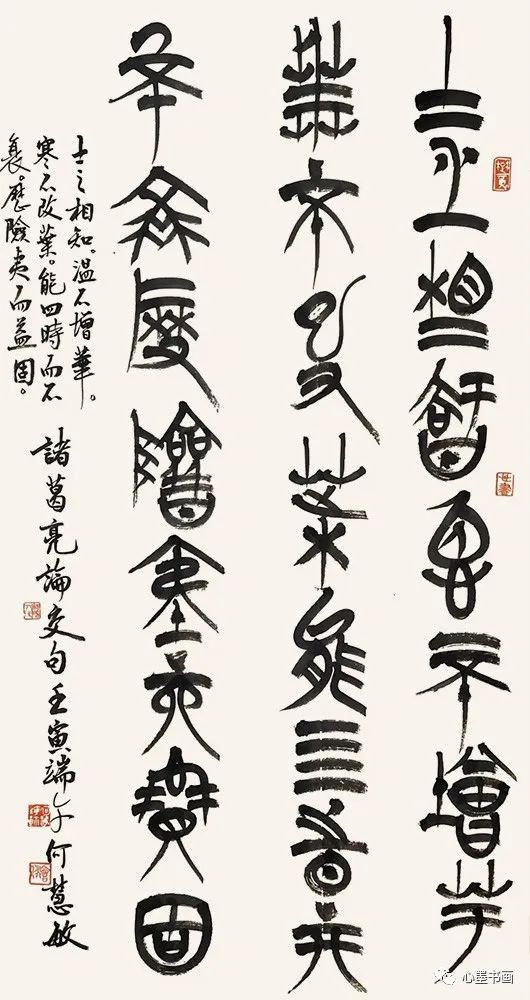 士之相知温不增華
寒不改葉能四時而
不衰歷險夷而益固
士之相知。温不增華。
寒不改葉。能四時而不
衰。歷險夷而益固。
諸葛亮論交句壬寅端午何慧敏
心墨书画